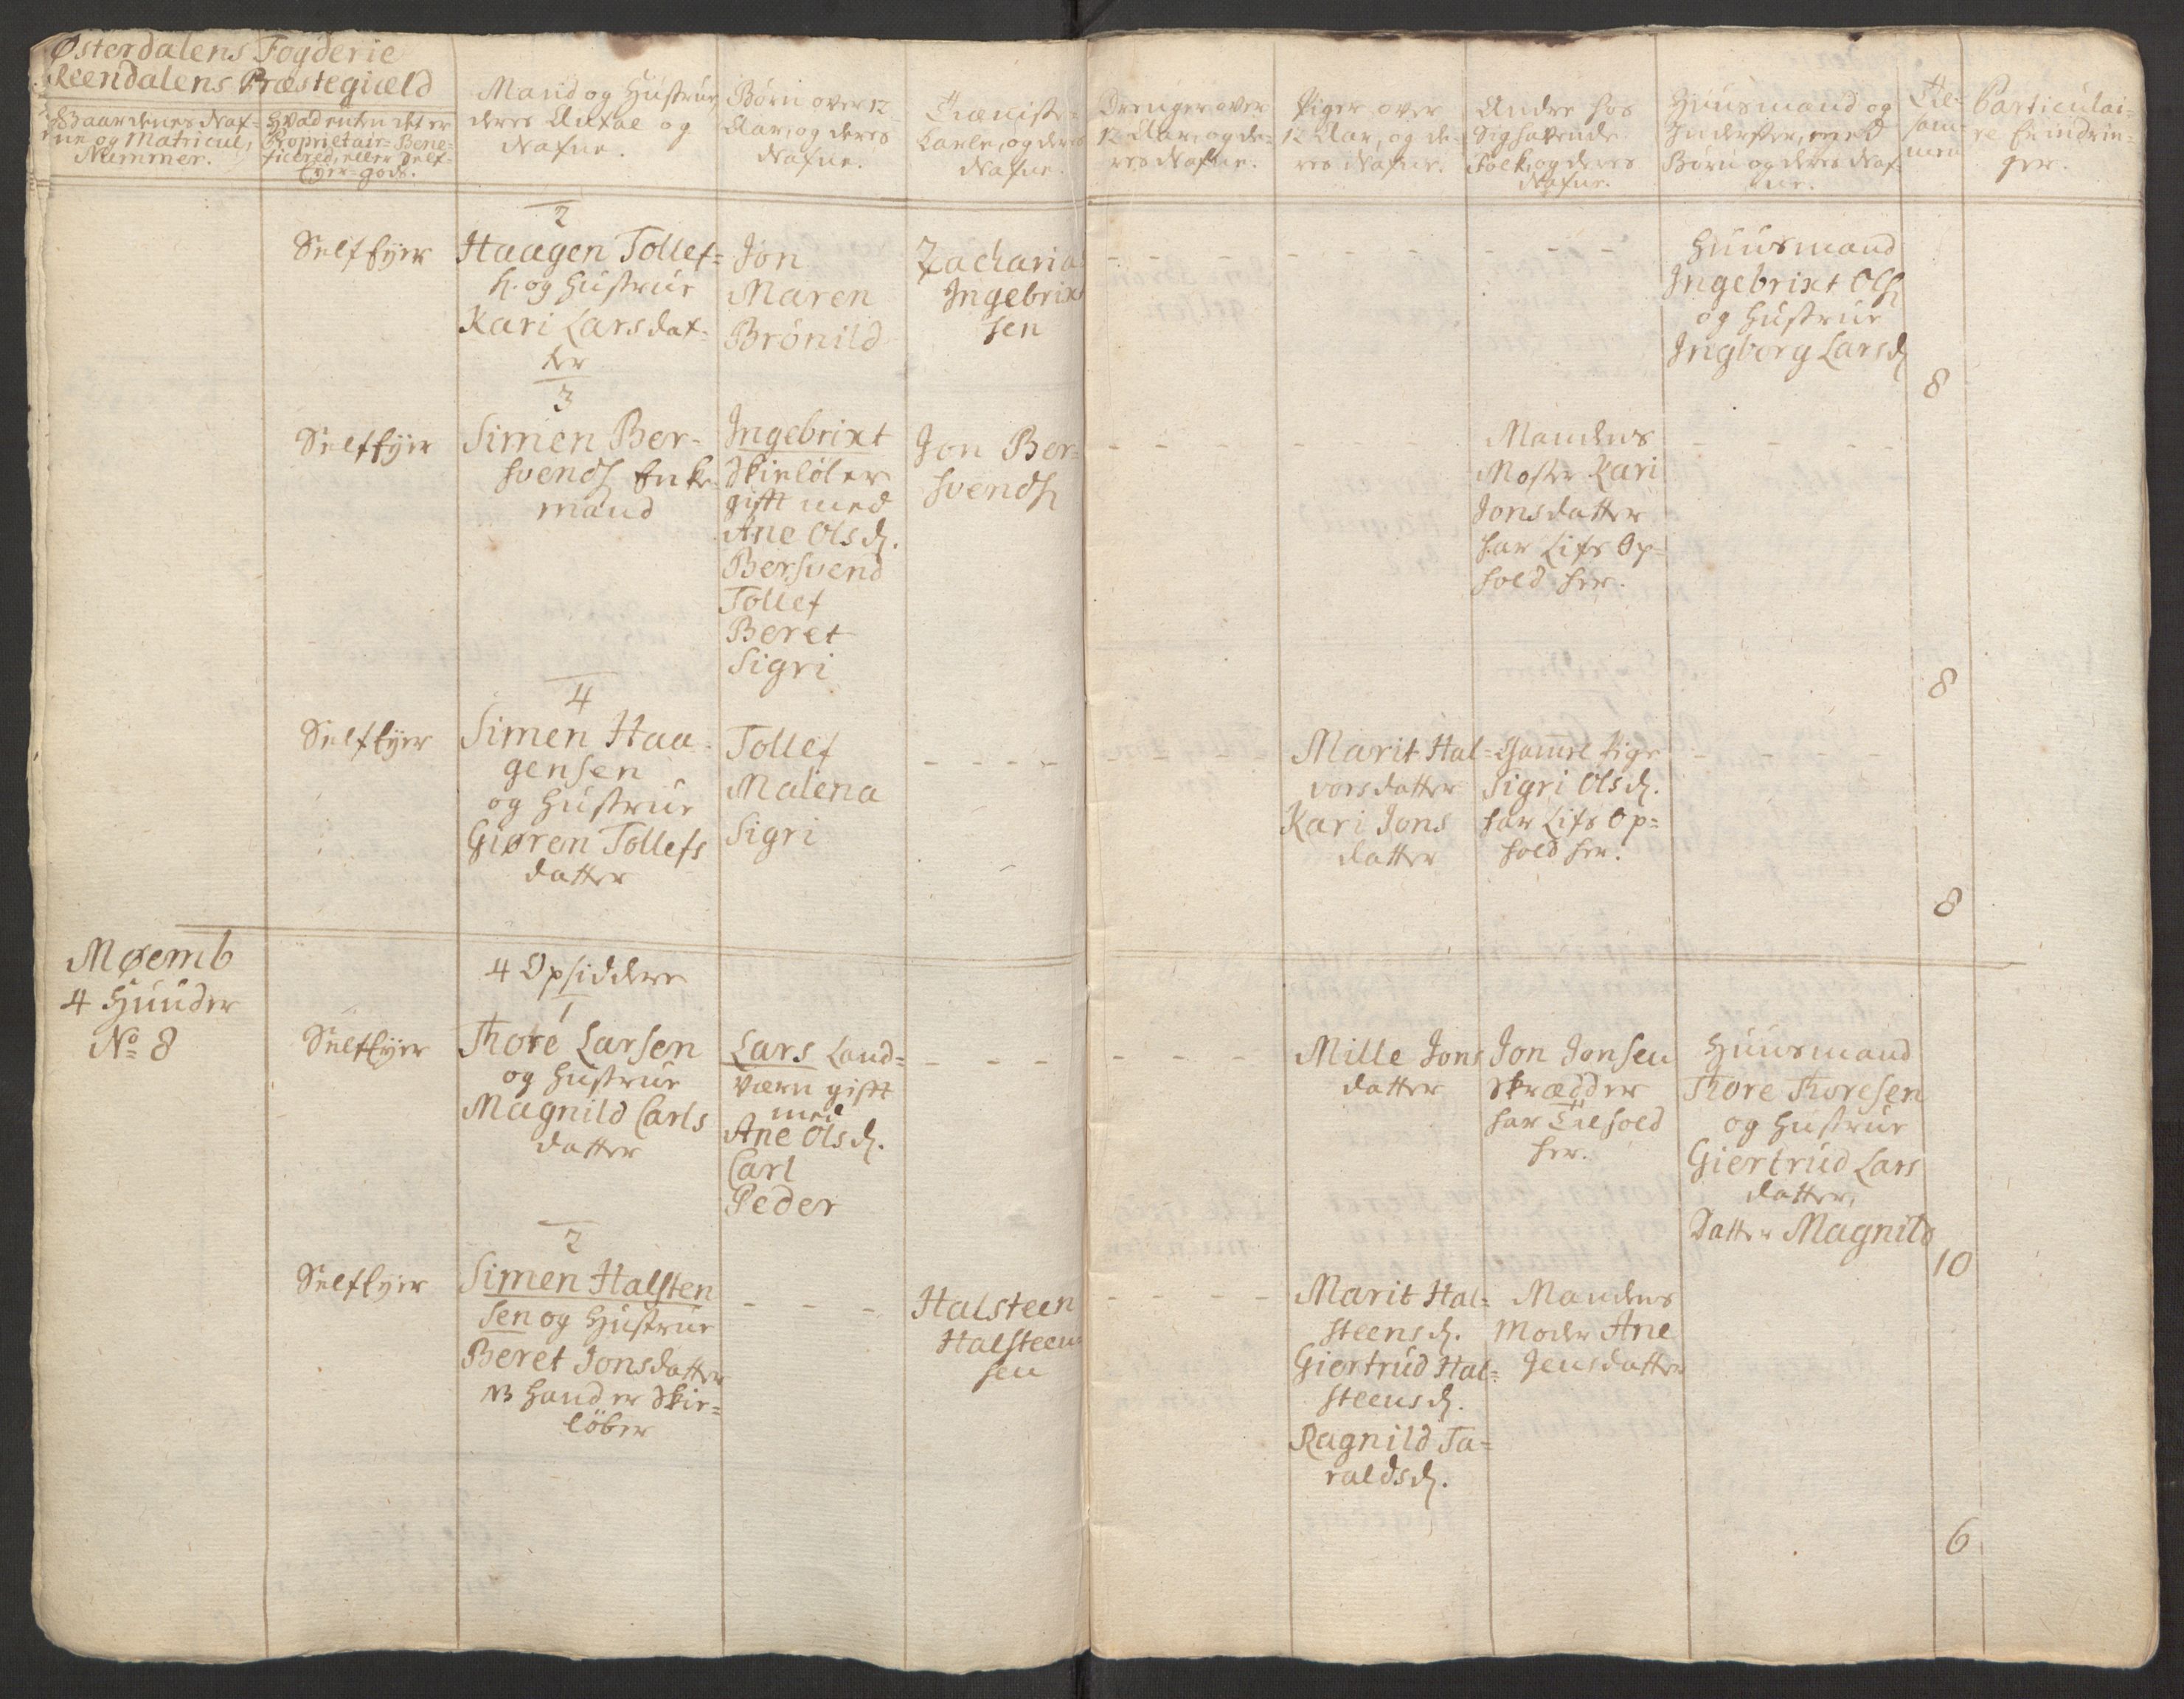 Østerdalens Fogderie
Reendalens Præstegield
Gaardenes Naf-
ne og Matricul,
Nummer.
Hvad enten det er
Proprietair- Bene-
ficered, eller Self-
Eyer-gods.
Mand og Hustrue,
deres Antal og
Nafne.
Børn over 12
Aar, og deres
Nafne.
Tieniste-
Karle, og deres
Nafne.
Drenger over
12 Aar, og de-
res Nafne.
Piger over
12 Aar, og de-
res Nafne.
Andre hos
Sig havende
Folk, og deres
Nafne.
Huusmænd og
Inderster, med
Børn og deres Naf-
ne.
Til-
sam-
men
Particulai-
re Erindrin-
ger.
2
Selfeyer
Haagen Tollef-
s. og Hustrue
Kari Larsdat-
ter
Jon
Maren
Brønild
Zacharias
Ingebrixt
sen
- - - - - - - - -
Huusmand
Ingebrixt Ols.
og Hustrue
Ingborg Larsd.
8
3
Selfeyer
Simen Ber-
svends. Enke-
mand
Ingebrixt
Skieløber
gift med
Ane Olsd.
Bersvend
Tollef
Beret
Sigri
Jon Ber-
svends.
- - - - - -
Mandens
Moster Kari
Jonsdatter
har Lifs Op-
hold her.
- - - -
8
4
Selfeyer
Simen Haa-
gensen
og Hustrue
Giøren Tollefs
datter
Tollef
Malena
Sigri
- - - -
- - - -
Marit Hal-
vorsdatter
Kari Jons
datter
Gamel Pige
Sigri Olsd.
har Lifs Op-
hold her.
- - -
8
Møemb
4 Huuder
No 8
4 Opsiddere
1
Selfeyer
Thore Larsen
og Hustrue
Magnild Carls
datter
Lars Land-
værn gift
med
Ane Olsd.
Carl
Peder
- - -
- - -
Mille Jons
datter
Jon Jonsen
Skrædder
har Tilhold
her.
Huusmand
Thore Thoresen
og Hustrue
Giertrud Lars
datter,
Datter Magnild
10
2
Selfeyer
Simen Halsten
sen og Hustrue
Beret Jonsdatter
NB hand er Skie-
løber
- - -
Halsteen
Halsteen
sen
- - - -
Marit Hal-
steensd.
Giertrud Hal-
steensd.
Ragnild Ta-
raldsd.
Mandens
Moder Ane
Jensdatter
6